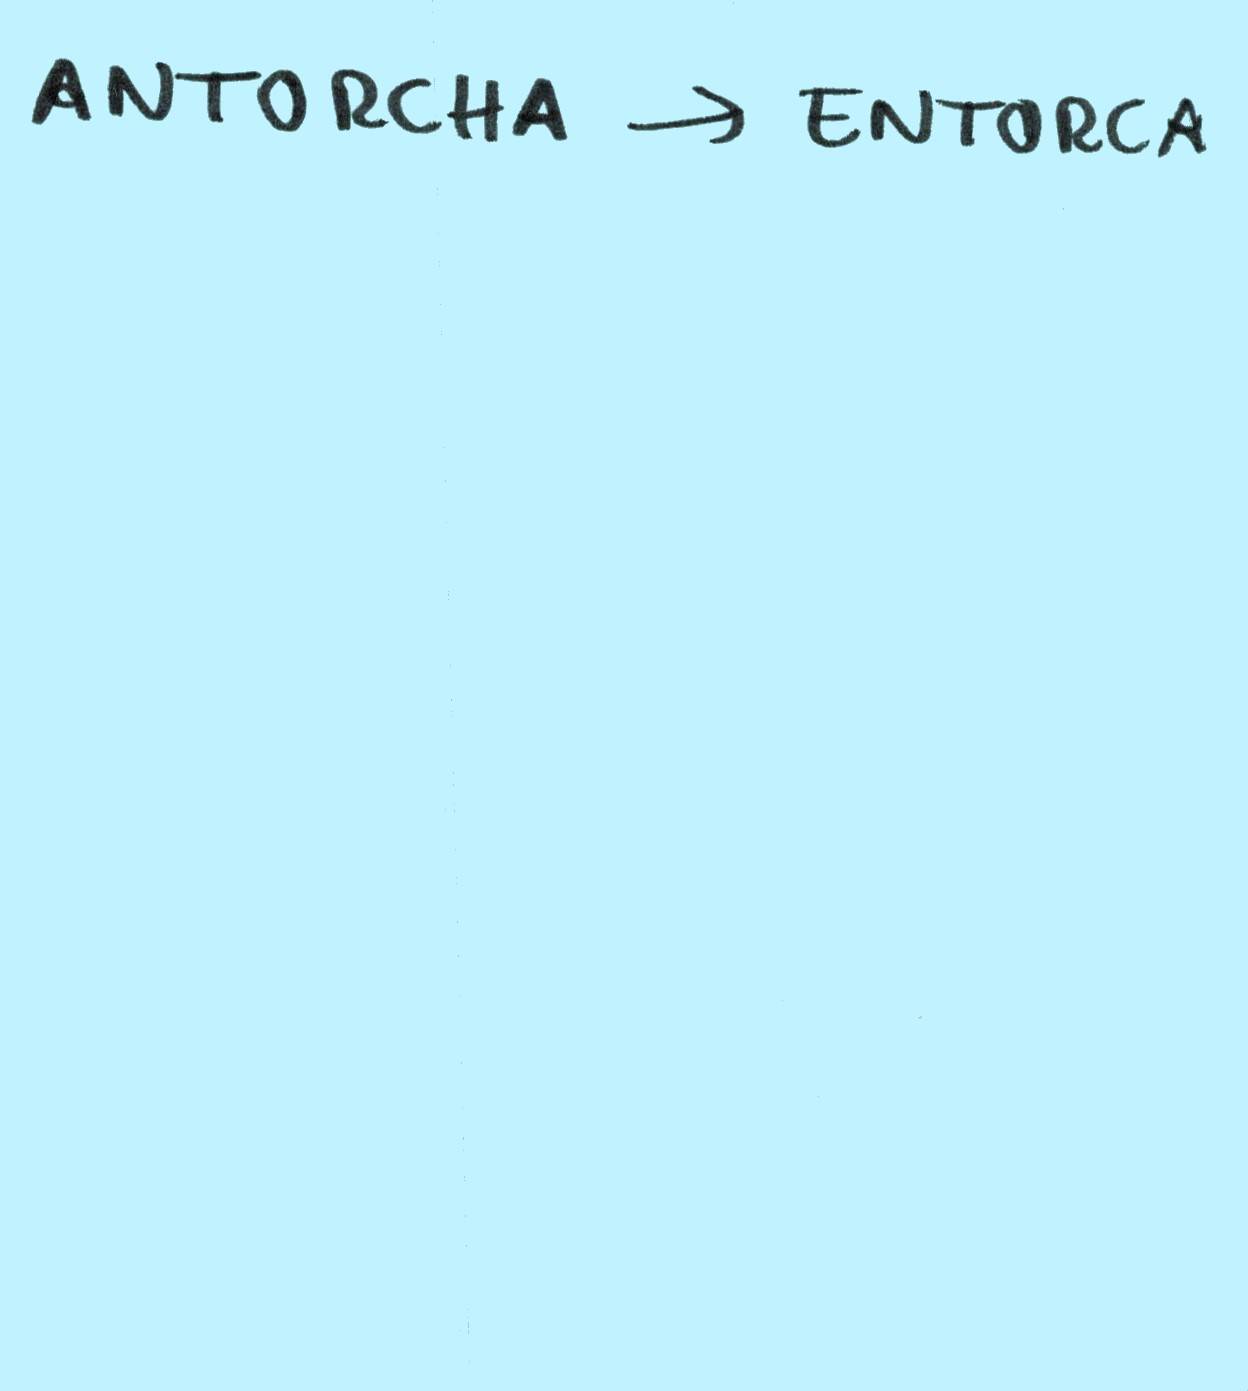 ANTORCHA → ENTORCA